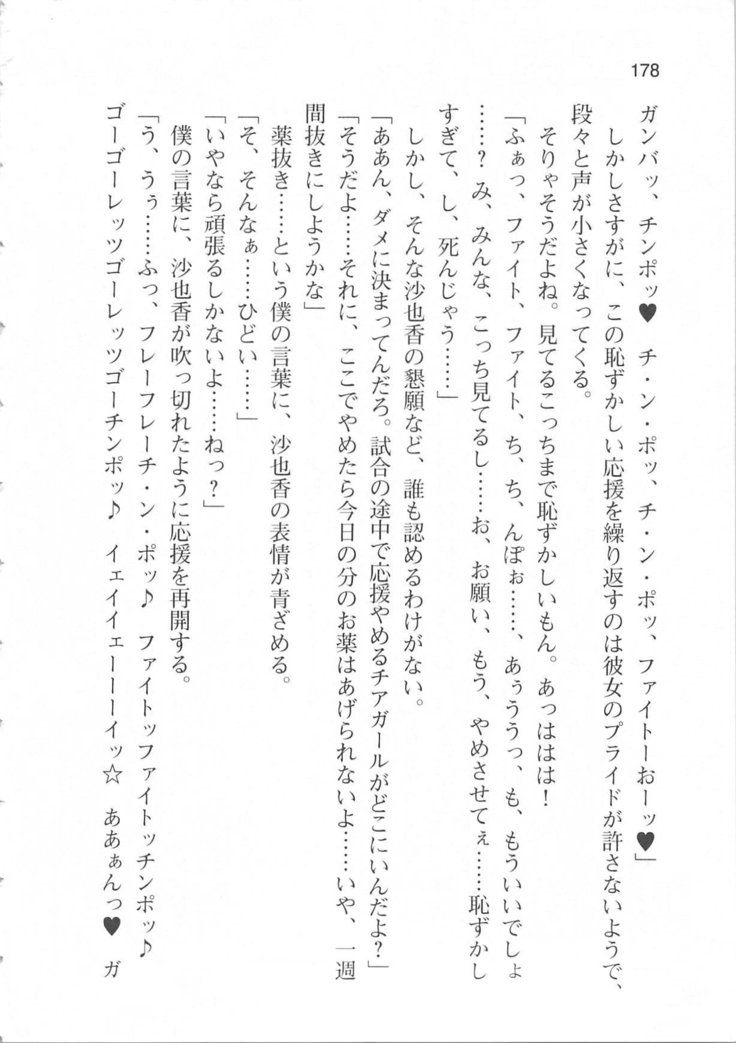 178
ガンバッ、チンポッ♥　チ・ン・ポッ、チ・ン・ポッ、ファイトーおーッ♥」
しかしさすがに、この恥ずかしい応援を繰り返すのは彼女のプライドが許さないようで、
段々と声が小さくなってくる。
そりゃそうだよね。見てるこっちまで恥ずかしいもん。あっははは！
「ふぁっ、ファイト、ファイト、ち、ち、んぽぉ……、あぅううっ、も、もういいでしょ
……？　み、みんな、こっち見てるし……お、お願い、もう、やめさせてぇ……恥ずかし
すぎて、し、死んじゃう……」
しかし、そんな沙也香の懇願など、誰も認めるわけがない。
「ああん、ダメに決まってんだろ。試合の途中で応援やめるチアガールがどこにいんだよ？」
「そうだよ……それに、ここでやめたら今日の分のお薬はあげられないよ……いや、一週
間抜きにしようかな」
薬抜き……という僕の言葉に、沙也香の表情が青ざめる。
「そ、そんなぁ……ひどい……」
「いやなら頑張るしかないよ……ねっ？」
僕の言葉に、沙也香が吹っ切れたように応援を再開する。
「う、うぅ……ふっ、フレーフレーチ・ン・ポッ♪　ファイトッファイトッチンポッ♪
ゴーゴーレッツゴーレッツゴーチンポッ♪　イェイイェーーーイッ☆　ああぁんっ♥　ガ